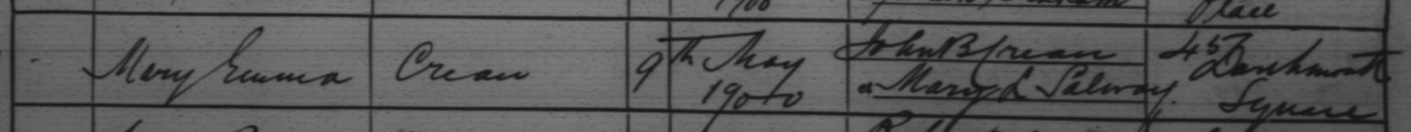 1900 Place
Mary Emma Crean 9th May John B Crean 45 Dartmouth
1900 & Mary L Salway. Square